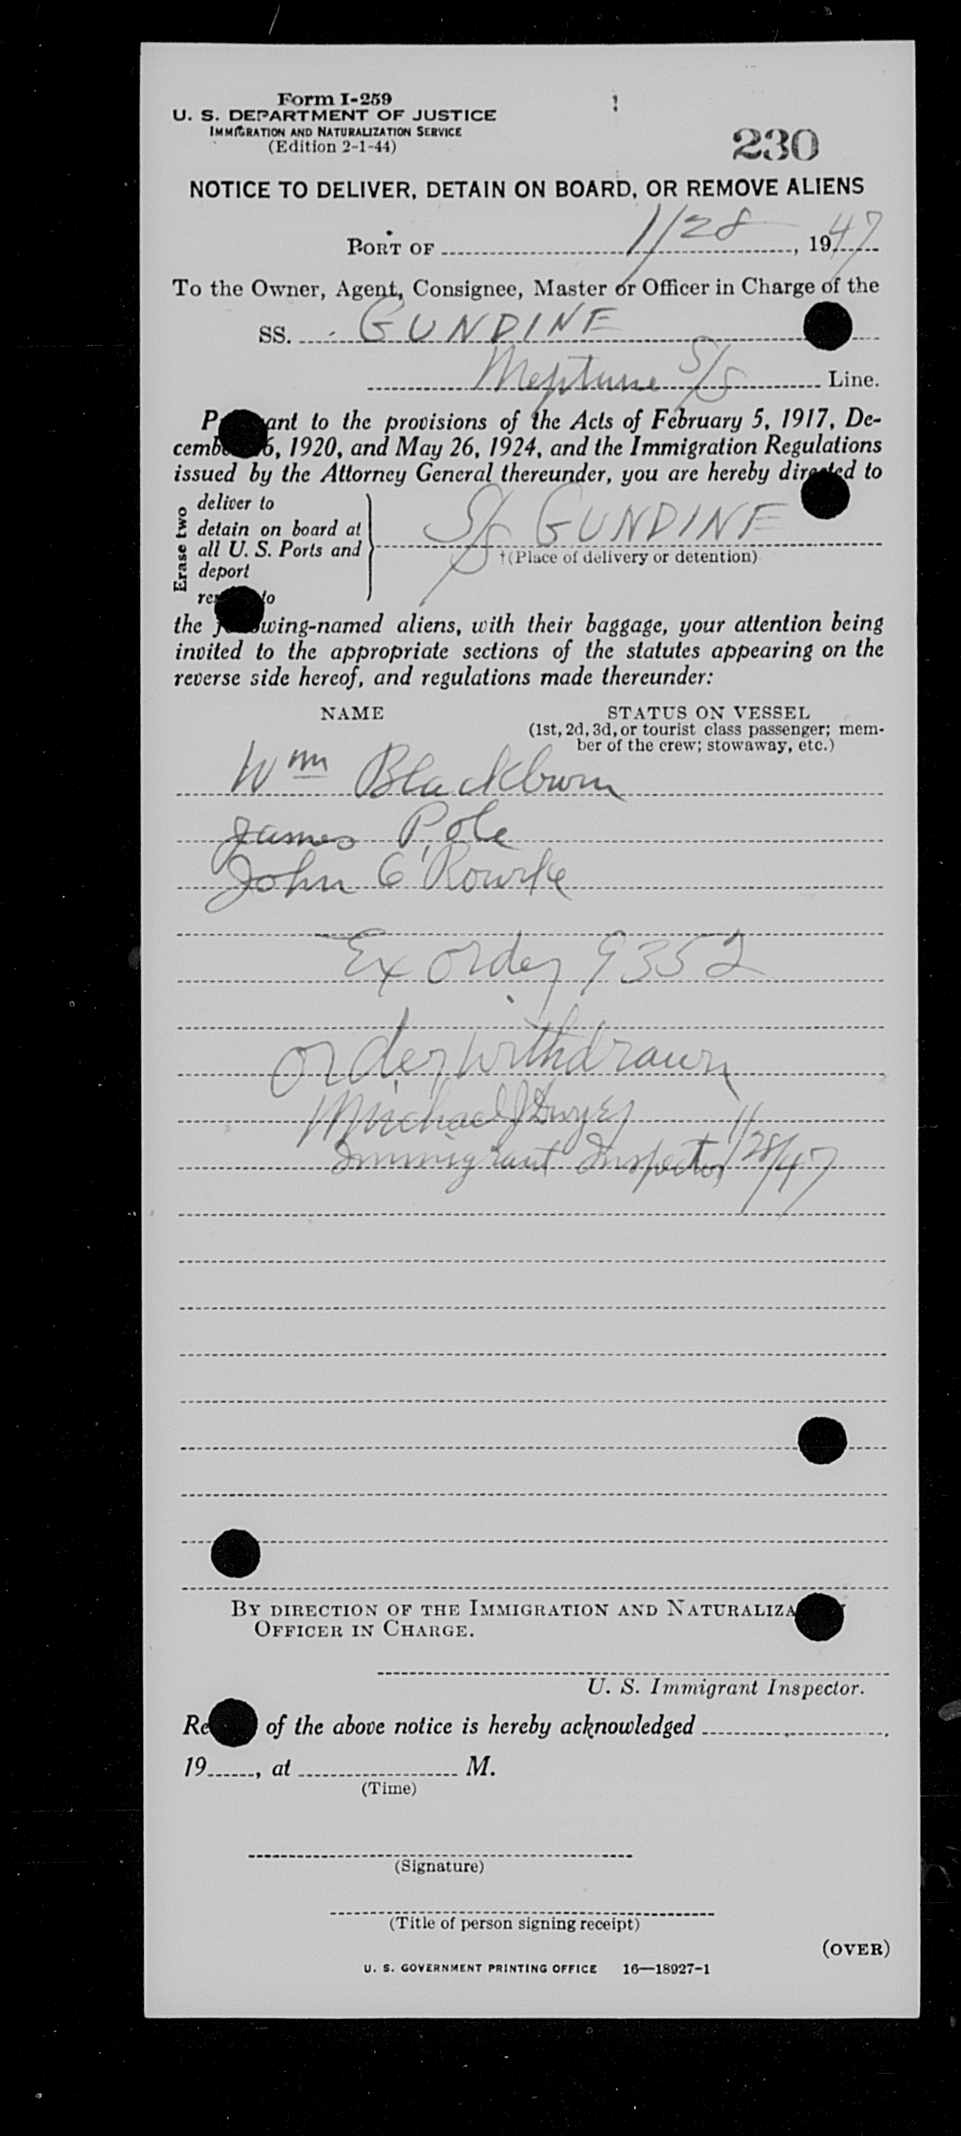 Form I-259
U. S. DEPARTMENT OF JUSTICE
IMMIGRATION AND NATURALIZATION SERVICE
(Edition 2-1-44)
230
NOTICE TO DELIVER, DETAIN ON BOARD, OR REMOVE ALIENS
PORT OF 1/28, 1947
To the Owner, Agent, Consignee, Master or Officer in Charge of the
SS. GUNDINE
Neptune S/S Line.
P ant to the provisions of the Acts of February 5, 1917, De-
cemb 6, 1920, and May 26, 1924, and the Immigration Regulations
issued by the Attorney General thereunder, you are hereby directed to
Erase two
deliver to
detain on board at
all U. S. Ports and
deport
re to
S/S GUNDINE
†(Place of delivery or detention)
the following-named aliens, with their baggage, your attention being
invited to the appropriate sections of the statutes appearing on the
reverse side hereof, and regulations made thereunder:
NAME STATUS ON VESSEL
(1st, 2d, 3d, or tourist class passenger; mem-
ber of the crew; stowaway, etc.)
Wm Blackburn
James Pole
John O'Rourke
Ex order 9352
order withdrawn
Michael J Dwyer
Immigrant Inspector 1/28/47
BY DIRECTION OF THE IMMIGRATION AND NATURALIZA
OFFICER IN CHARGE.
U. S. Immigrant Inspector.
Re of the above notice is hereby acknowledged
19 , at M.
(Time)
(Signature)
(Title of person signing receipt)
(OVER)
U. S. GOVERNMENT PRINTING OFFICE 16—18927-1